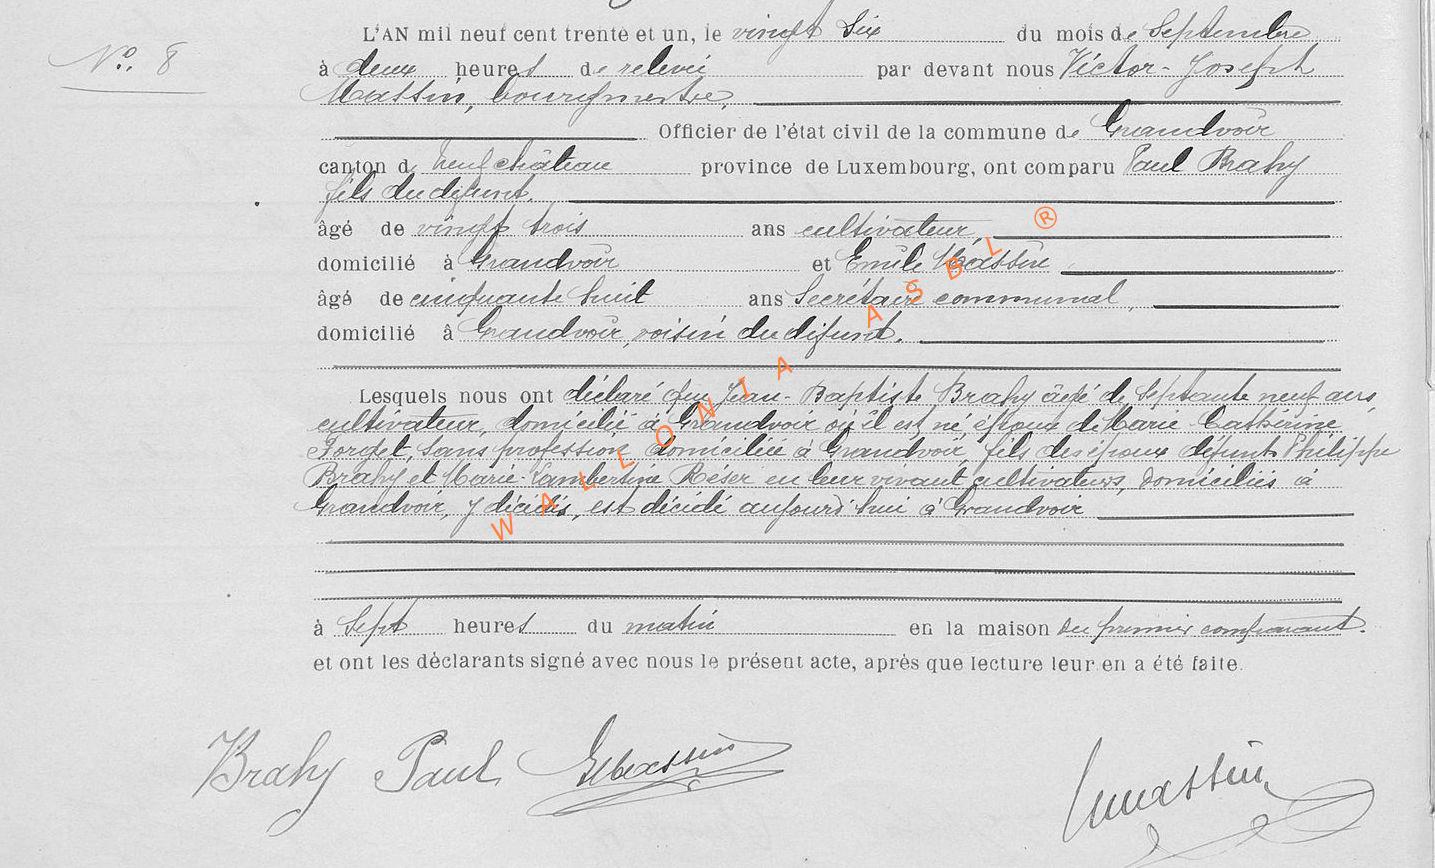 No. 8
L'AN mil neuf cent trente et un, le vingt six du mois de Septembre
à deux heures de relevée par devant nous Victor-Joseph
Massin, bourgmestre,
Officier de l'état civil de la commune de Grandvoir
canton de Neufchâteau province de Luxembourg, ont comparu Paul Brahy
fils du défunt.
âgé de vingt trois ans cultivateur,
domicilié à Grandvoir et Emile Massin
âgé de cinquante huit ans Secrétaire communal,
domicilié à Grandvoir, voisin du défunt.
Lesquels nous ont déclaré que Jean-Baptiste Brahy âgé de Septante neuf ans,
cultivateur, domicilié à Grandvoir où il est né époux de Marie Cathérine
Forget, Sans profession, domiciliée à Grandvoir, fils des époux défunts Philippe
Brahy et Marie-Lambertine Réser en leur vivant cultivateurs, domiciliés à
Grandvoir, y décédés, est décédé aujourd'hui à Grandvoir
à Sept heures du matin en la maison du premier comparant.
et ont les déclarants signé avec nous le présent acte, après que lecture leur en a été faite.
Brahy Paul EMassin VMassin
WALLONIA ASBL ®